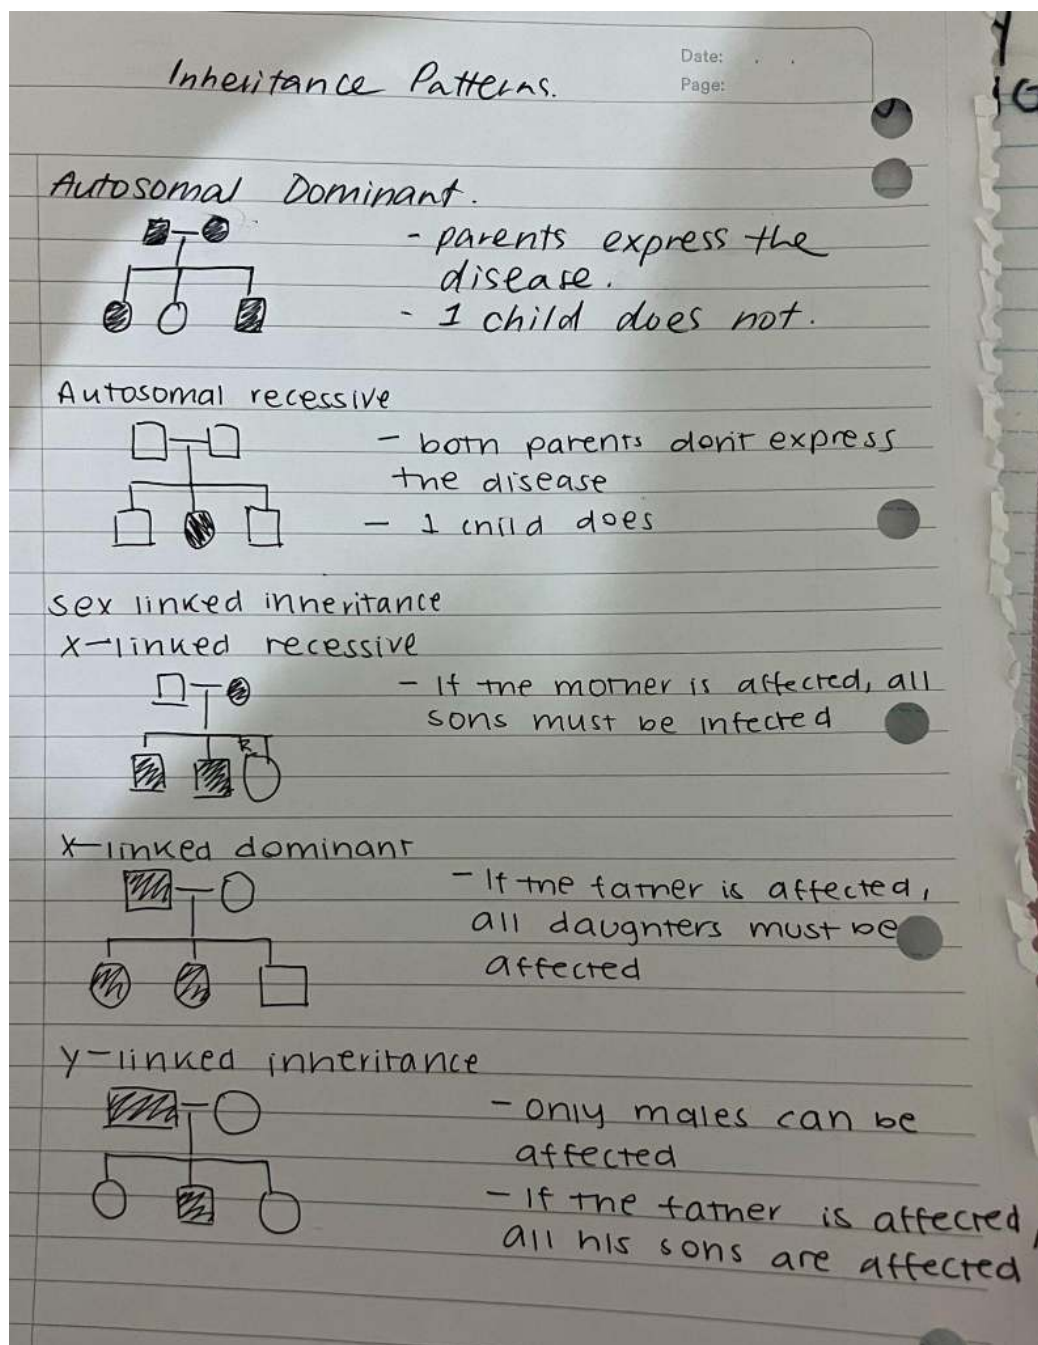 Date: . .
Inheritance Patterns.
Page:
Autosomal Dominant.
- parents express the
disease.
- 1 child does not.
Autosomal recessive
- both parents don't express
the disease
- 1 child does
sex linked inheritance
X-linked recessive
- If the mother is affected, all
sons must be infected
X-linked dominant
- If the father is affected,
all daughters must be
affected
Y-linked inheritance
- only males can be
affected
- If the father is affected,
all his sons are affected